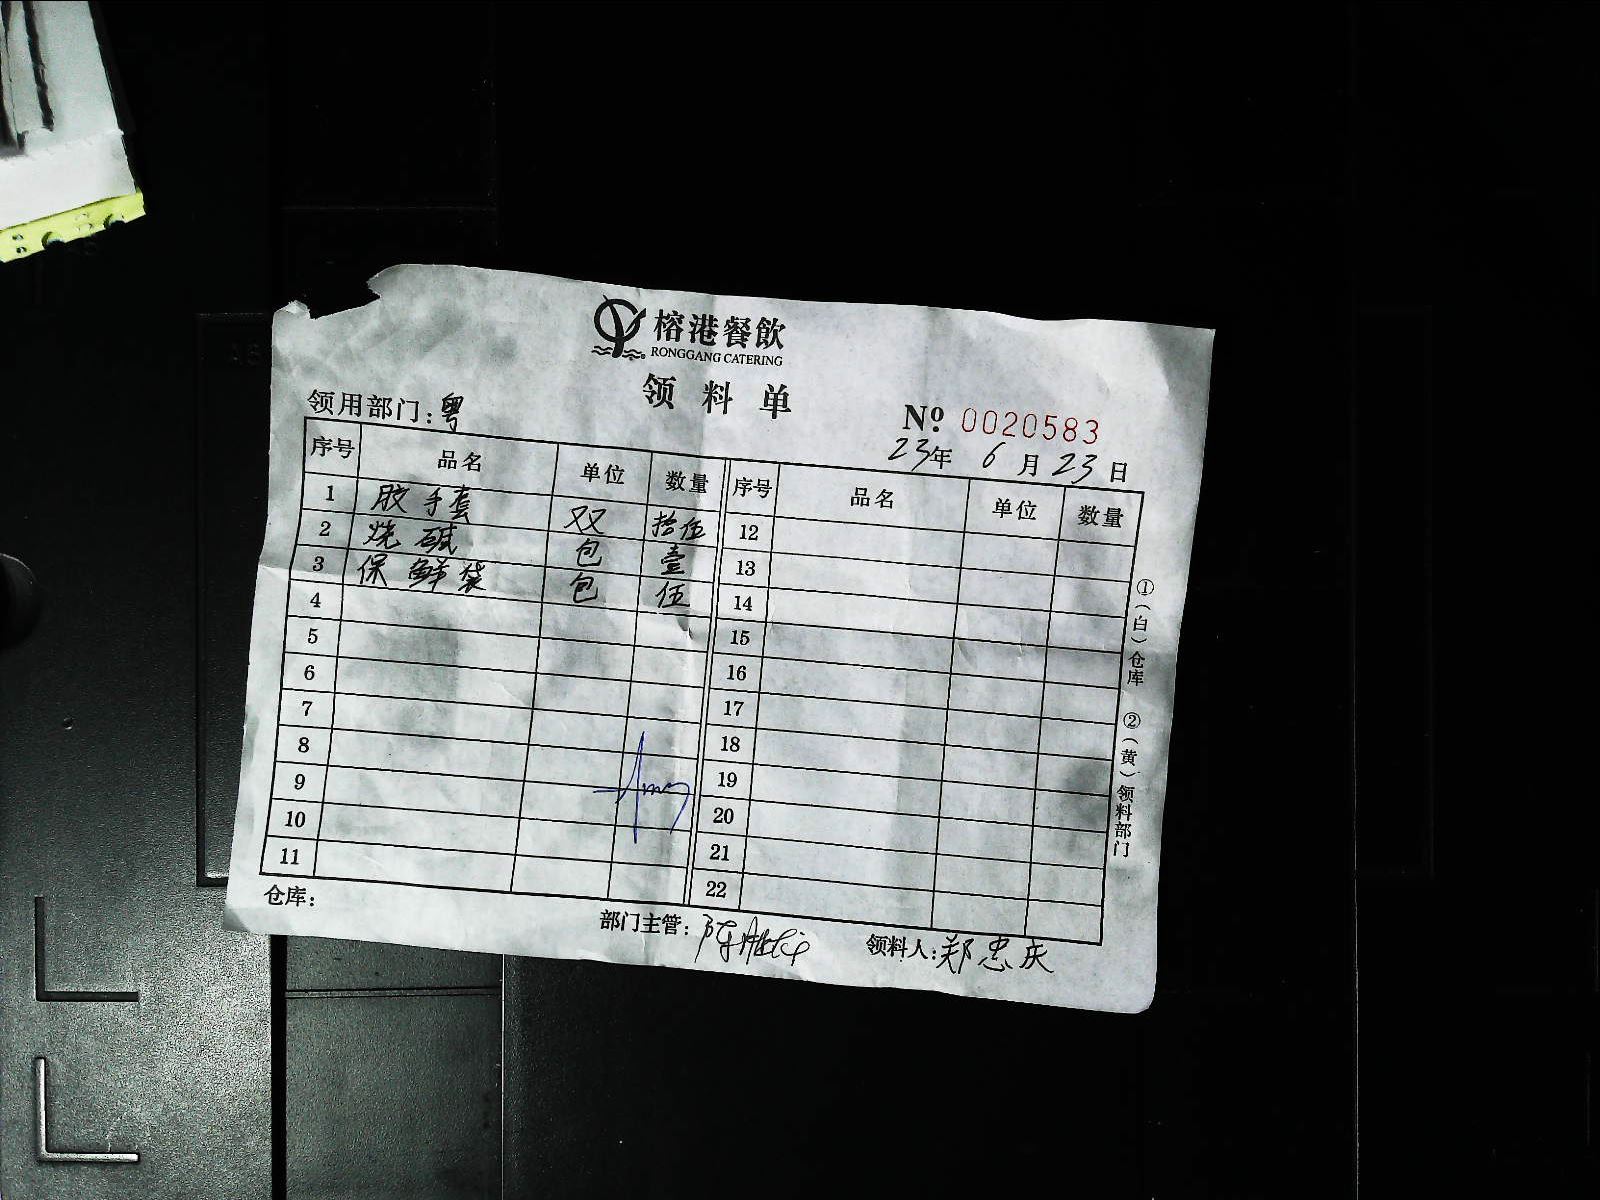 榕港餐飲
RONGGANG CATERING
领料单
领用部门:粤
№ 0020583
23年 6月 23日
序号 品名 单位 数量 序号 品名 单位 数量
1 胶手套 双 拾伍 12
2 烧碱 包 壹 13
3 保鲜袋 包 伍 14
4 15
5 16
6 17
7 18
8 19
9 20
10 21
11 22
①(白)仓库 ②(黄)领料部门
仓库:
部门主管:
领料人:郑忠庆